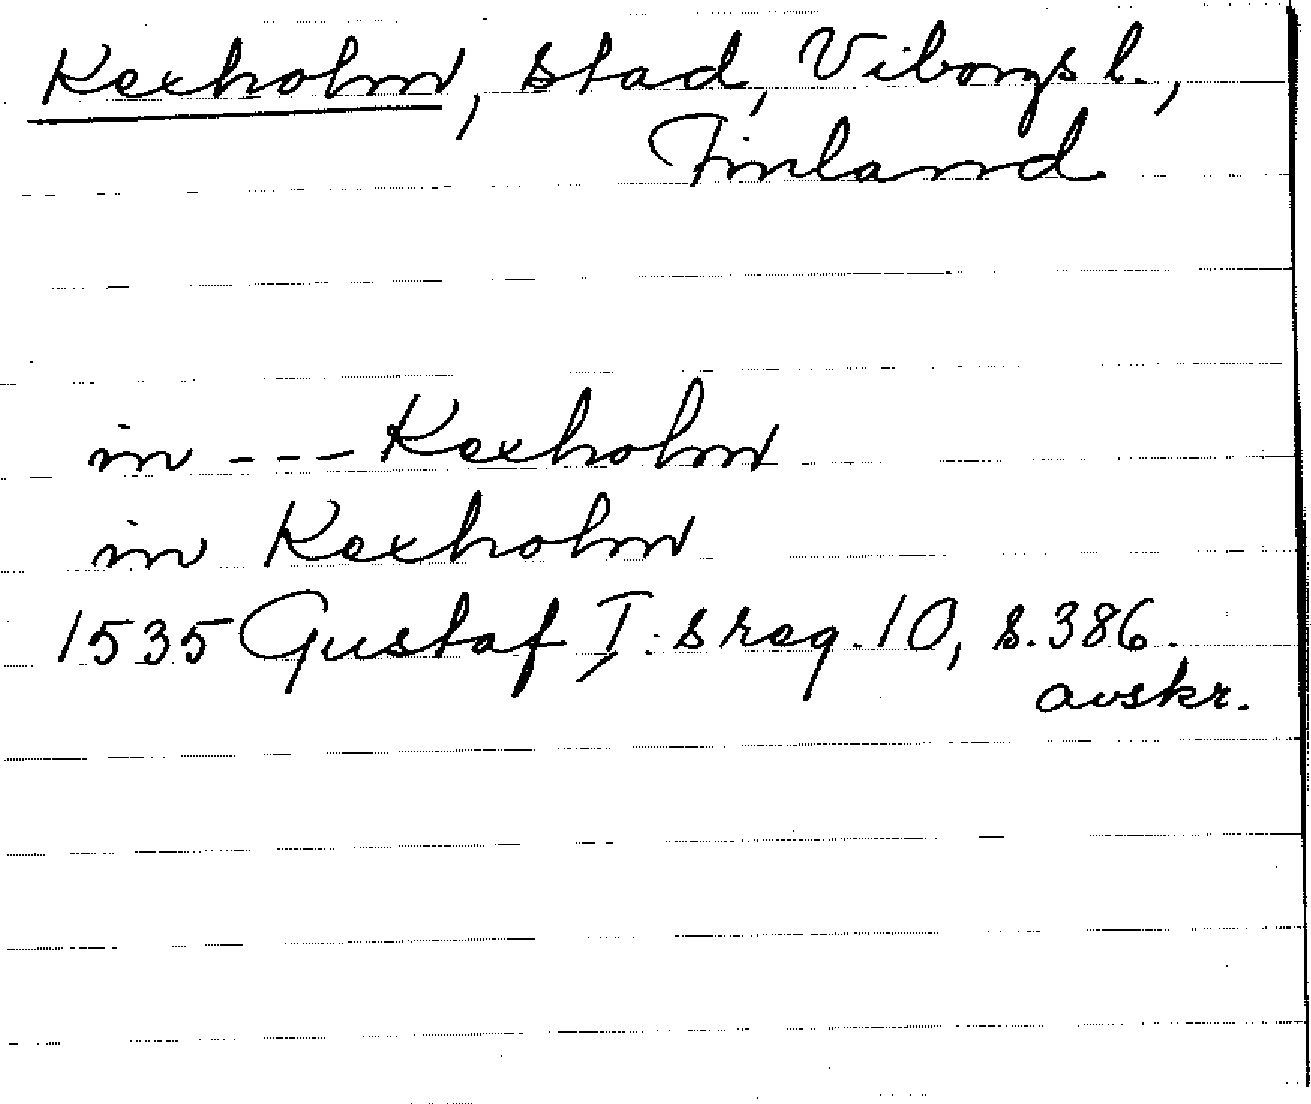 Kexholm, stad, Viborgs l.,
Finland
in --- Kexholm
in Kexholm
1535 Gustaf I:s reg. 10, s. 386.
avskr.